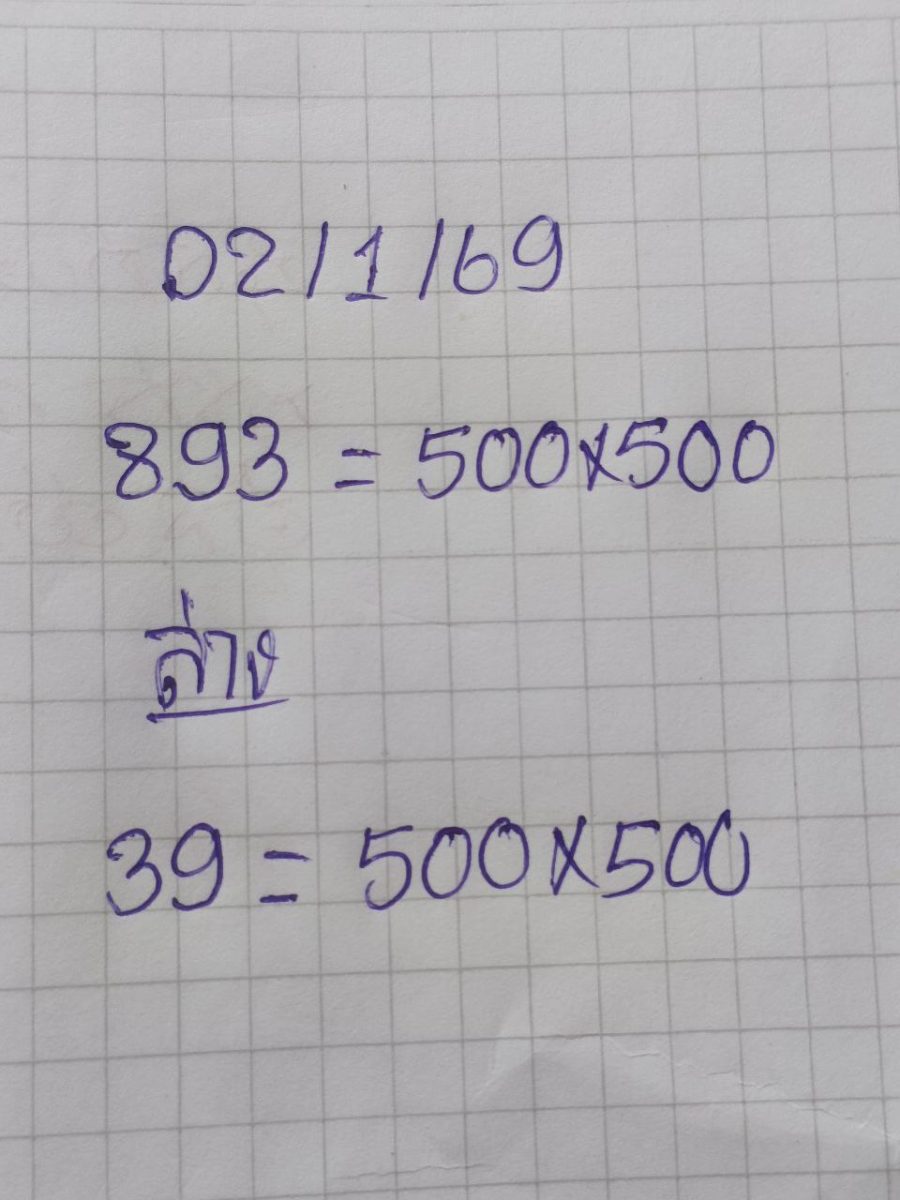 02/1/69
893 = 500x500
ล่าง
39 = 500x500